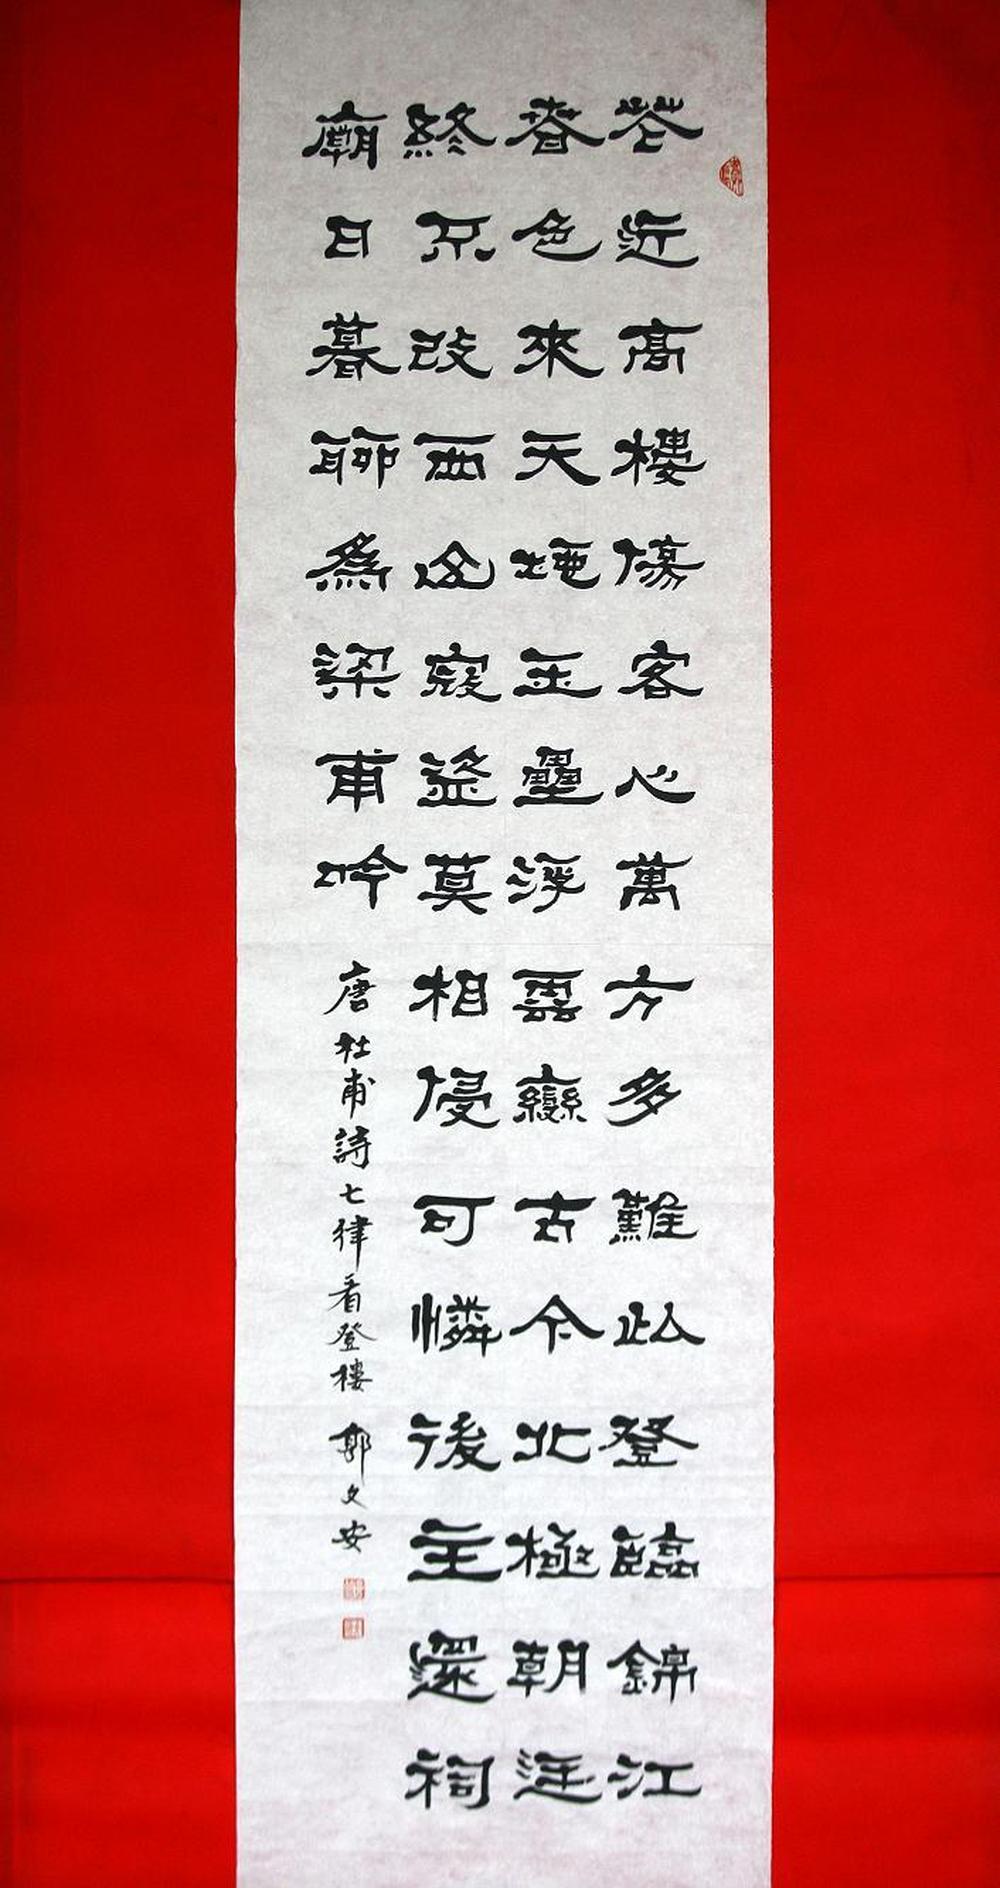 花近高樓傷客心萬方多難此登臨錦江
春色來天地玉壘浮雲變古今北極朝廷
終不改西山寇盜莫相侵可憐後主還祠
廟日暮聊為梁甫吟 唐杜甫詩七律看登樓 郭文安